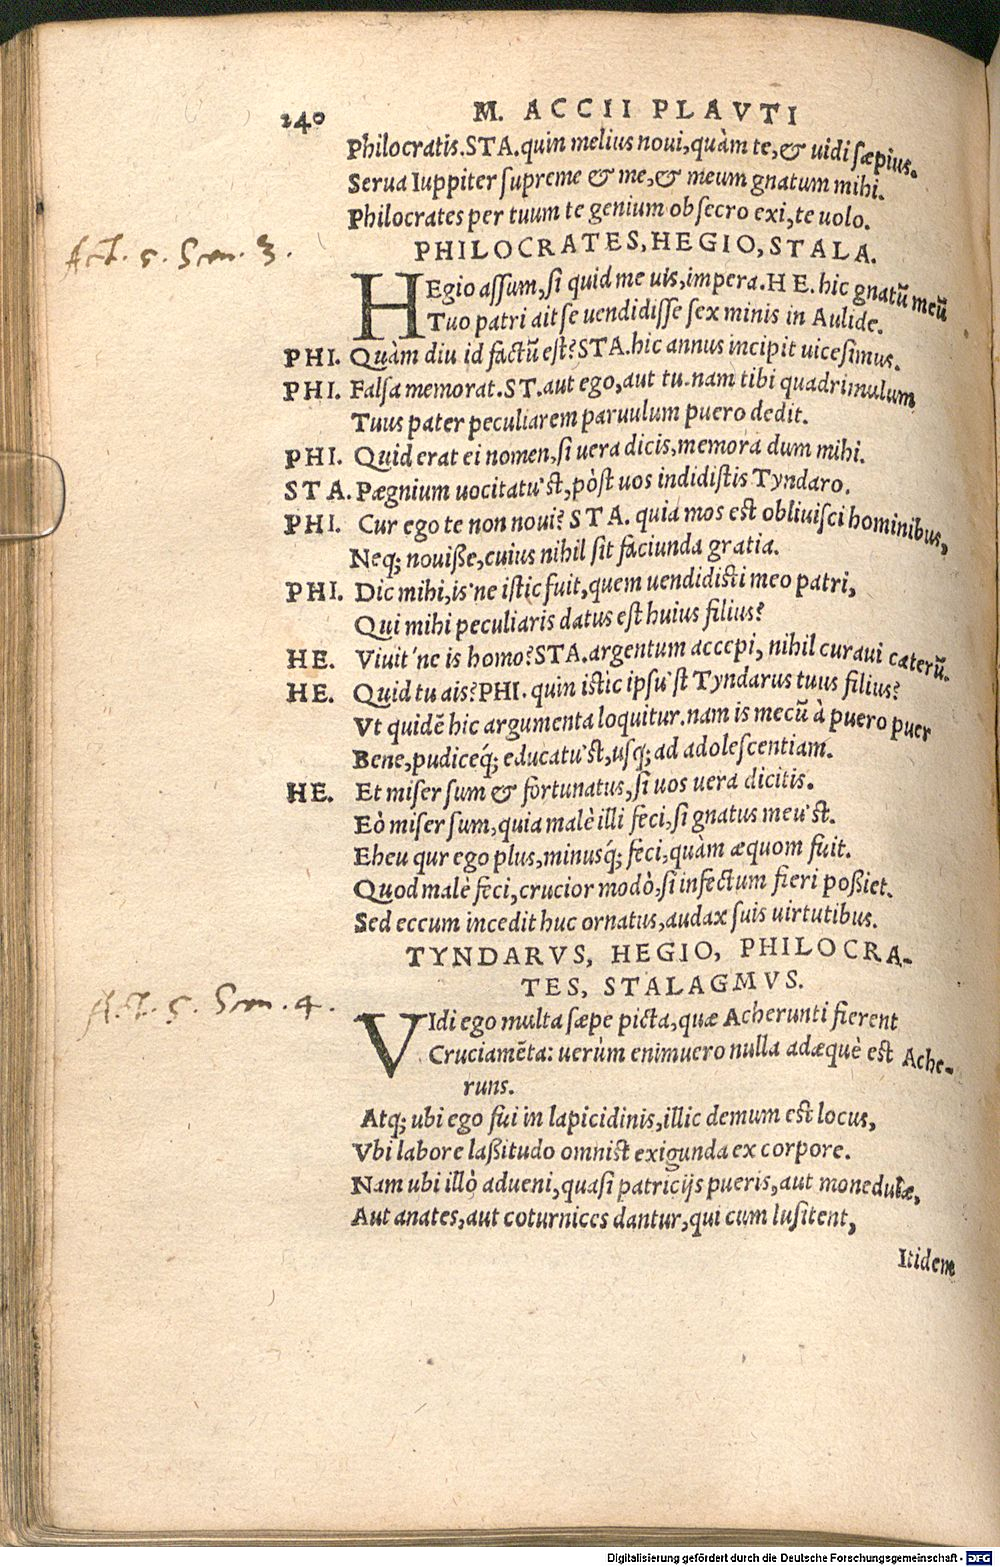 240 M. ACCII PLAVTI
Philocratis.STA.quin melius noui,quàm te,& uidi sæpius.
Serua Iuppiter supreme & me,& meum gnatum mihi.
Philocrates per tuum te genium obsecro exi,te uolo.
PHILOCRATES,HEGIO,STALA.
Act. 5. Scen. 3.
HEgio assum,si quid me uis,impera.HE.hic gnatũ meũ
Tuo patri ait se uendidisse sex minis in Aulide.
PHI. Quàm diu id factũ est?STA.hic annus incipit uicesimus.
PHI. Falsa memorat.ST.aut ego,aut tu.nam tibi quadrimulum
Tuus pater peculiarem paruulum puero dedit.
PHI. Quid erat ei nomen,si uera dicis,memora dum mihi.
STA. Pægnium uocitatu'st,pòst uos indidistis Tyndaro.
PHI. Cur ego te non noui? STA. quia mos est obliuisci hominibus,
Neq; nouiße,cuius nihil sit faciunda gratia.
PHI. Dic mihi,is'ne istic fuit,quem uendidisti meo patri,
Qui mihi peculiaris datus est huius filius?
HE. Viuit'ne is homo?STA.argentum accepi, nihil curaui cæterũ.
HE. Quid tu ais?PHI. quin istic ipsu'st Tyndarus tuus filius?
Vt quidẽ hic argumenta loquitur.nam is mecũ à puero puer
Bene,pudiceq́; educatu'st,usq; ad adolescentiam.
HE. Et miser sum & fortunatus,si uos uera dicitis.
Eò miser sum,quia malè illi feci,si gnatus meu'st.
Eheu qur ego plus,minusq́; feci,quàm æquom fuit.
Quod malè feci,crucior modò,si infectum fieri poßiet.
Sed eccum incedit huc ornatus,audax suis uirtutibus.
TYNDARVS, HEGIO, PHILOCRA-
TES, STALAGMVS.
Act. 5. Scen. 4.
VIdi ego multa sæpe picta,quæ Acherunti fierent
Cruciamẽta: uerùm enimuero nulla adæquè est Ache-
runs.
Atq; ubi ego fui in lapicidinis,illic demum est locus,
Vbi labore laßitudo omnist exigunda ex corpore.
Nam ubi illò adueni,quasi patricijs pueris,aut monedulæ,
Aut anates,aut coturnices dantur,qui cum lusitent,
Itidem
Digitalisierung gefördert durch die Deutsche Forschungsgemeinschaft - DFG